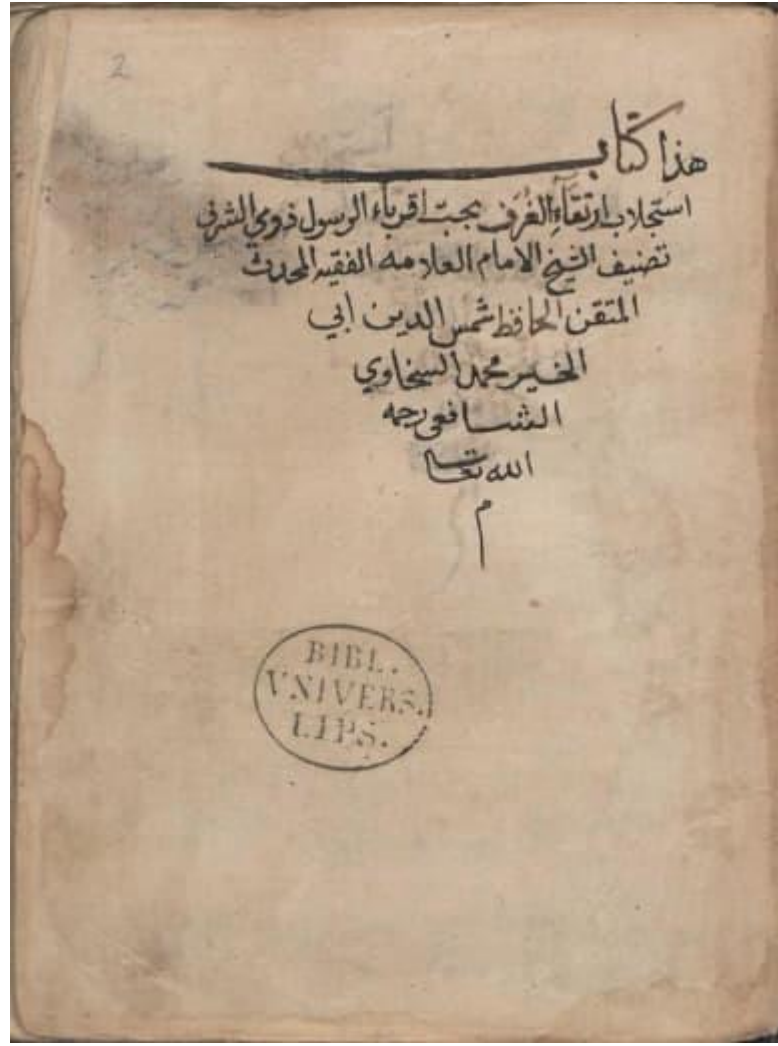 2
هذا كتاب
استجلاب ارتقاء الغُرَف بحبّ اقرباء الرسول ذوي الشرف
تصنيف الشيخ الامام العلامه الفقيه المحدث
المتقن الحافظ شمس الدين ابي
الخير محمد السخاوي
الشافعى رحمه
الله تعا
م
BIBL.
VNIVERS.
LIPS.